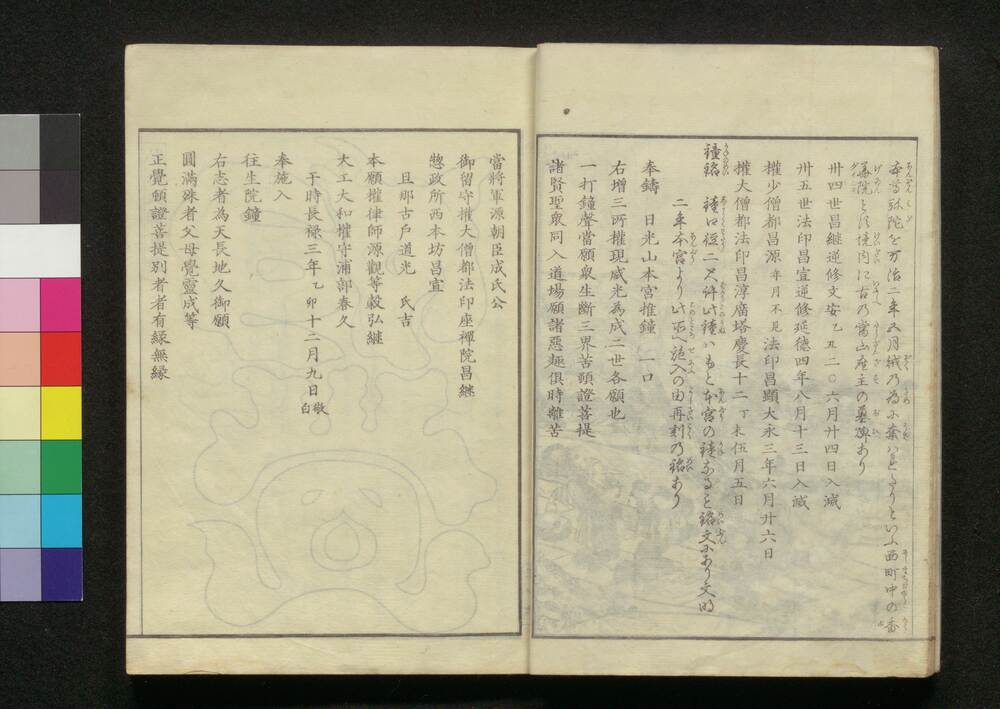 本尊弥陀を万治二年五月賊乃為に奪ハれたりといふ西町中の香
華院とす境内に古乃當山座主の墓碑あり
卅四世昌継逆修文安乙丑二〇六月廿四日入滅
卅五世法印昌宣逆修延德四年八月十三日入滅
權少僧都昌源年月不見法印昌顕大永三年六月廿六日
權大僧都法印昌淳廣塔慶長十二丁未伍月五日
鐘銘 鐘口径二尺許此鐘ハもと本宮の鐘なると銘文にあり文明
二年本宮より此所へ施入の由再刻乃銘あり
奉鋳 日光山本宮推鐘 一口
右增三所權現威光為成二世各願也
一打鐘聲當願衆生斷三界苦頓證菩提
諸賢聖衆同入道場願諸惡趣俱時離苦
當將軍源朝臣成氏公
御留守權大僧都法印座禪院昌継
惣政所西本坊昌宣
旦那古戶道光 氏吉
本願權律師源觀等毅弘継
大工大和權守浦部春久
于時長禄三年乙卯十二月九日敬白
奉施入
往生院鐘
右志者為天長地久御願
圓滿殊者父母覺靈成等
正覺頓證菩提別者者有縁無縁